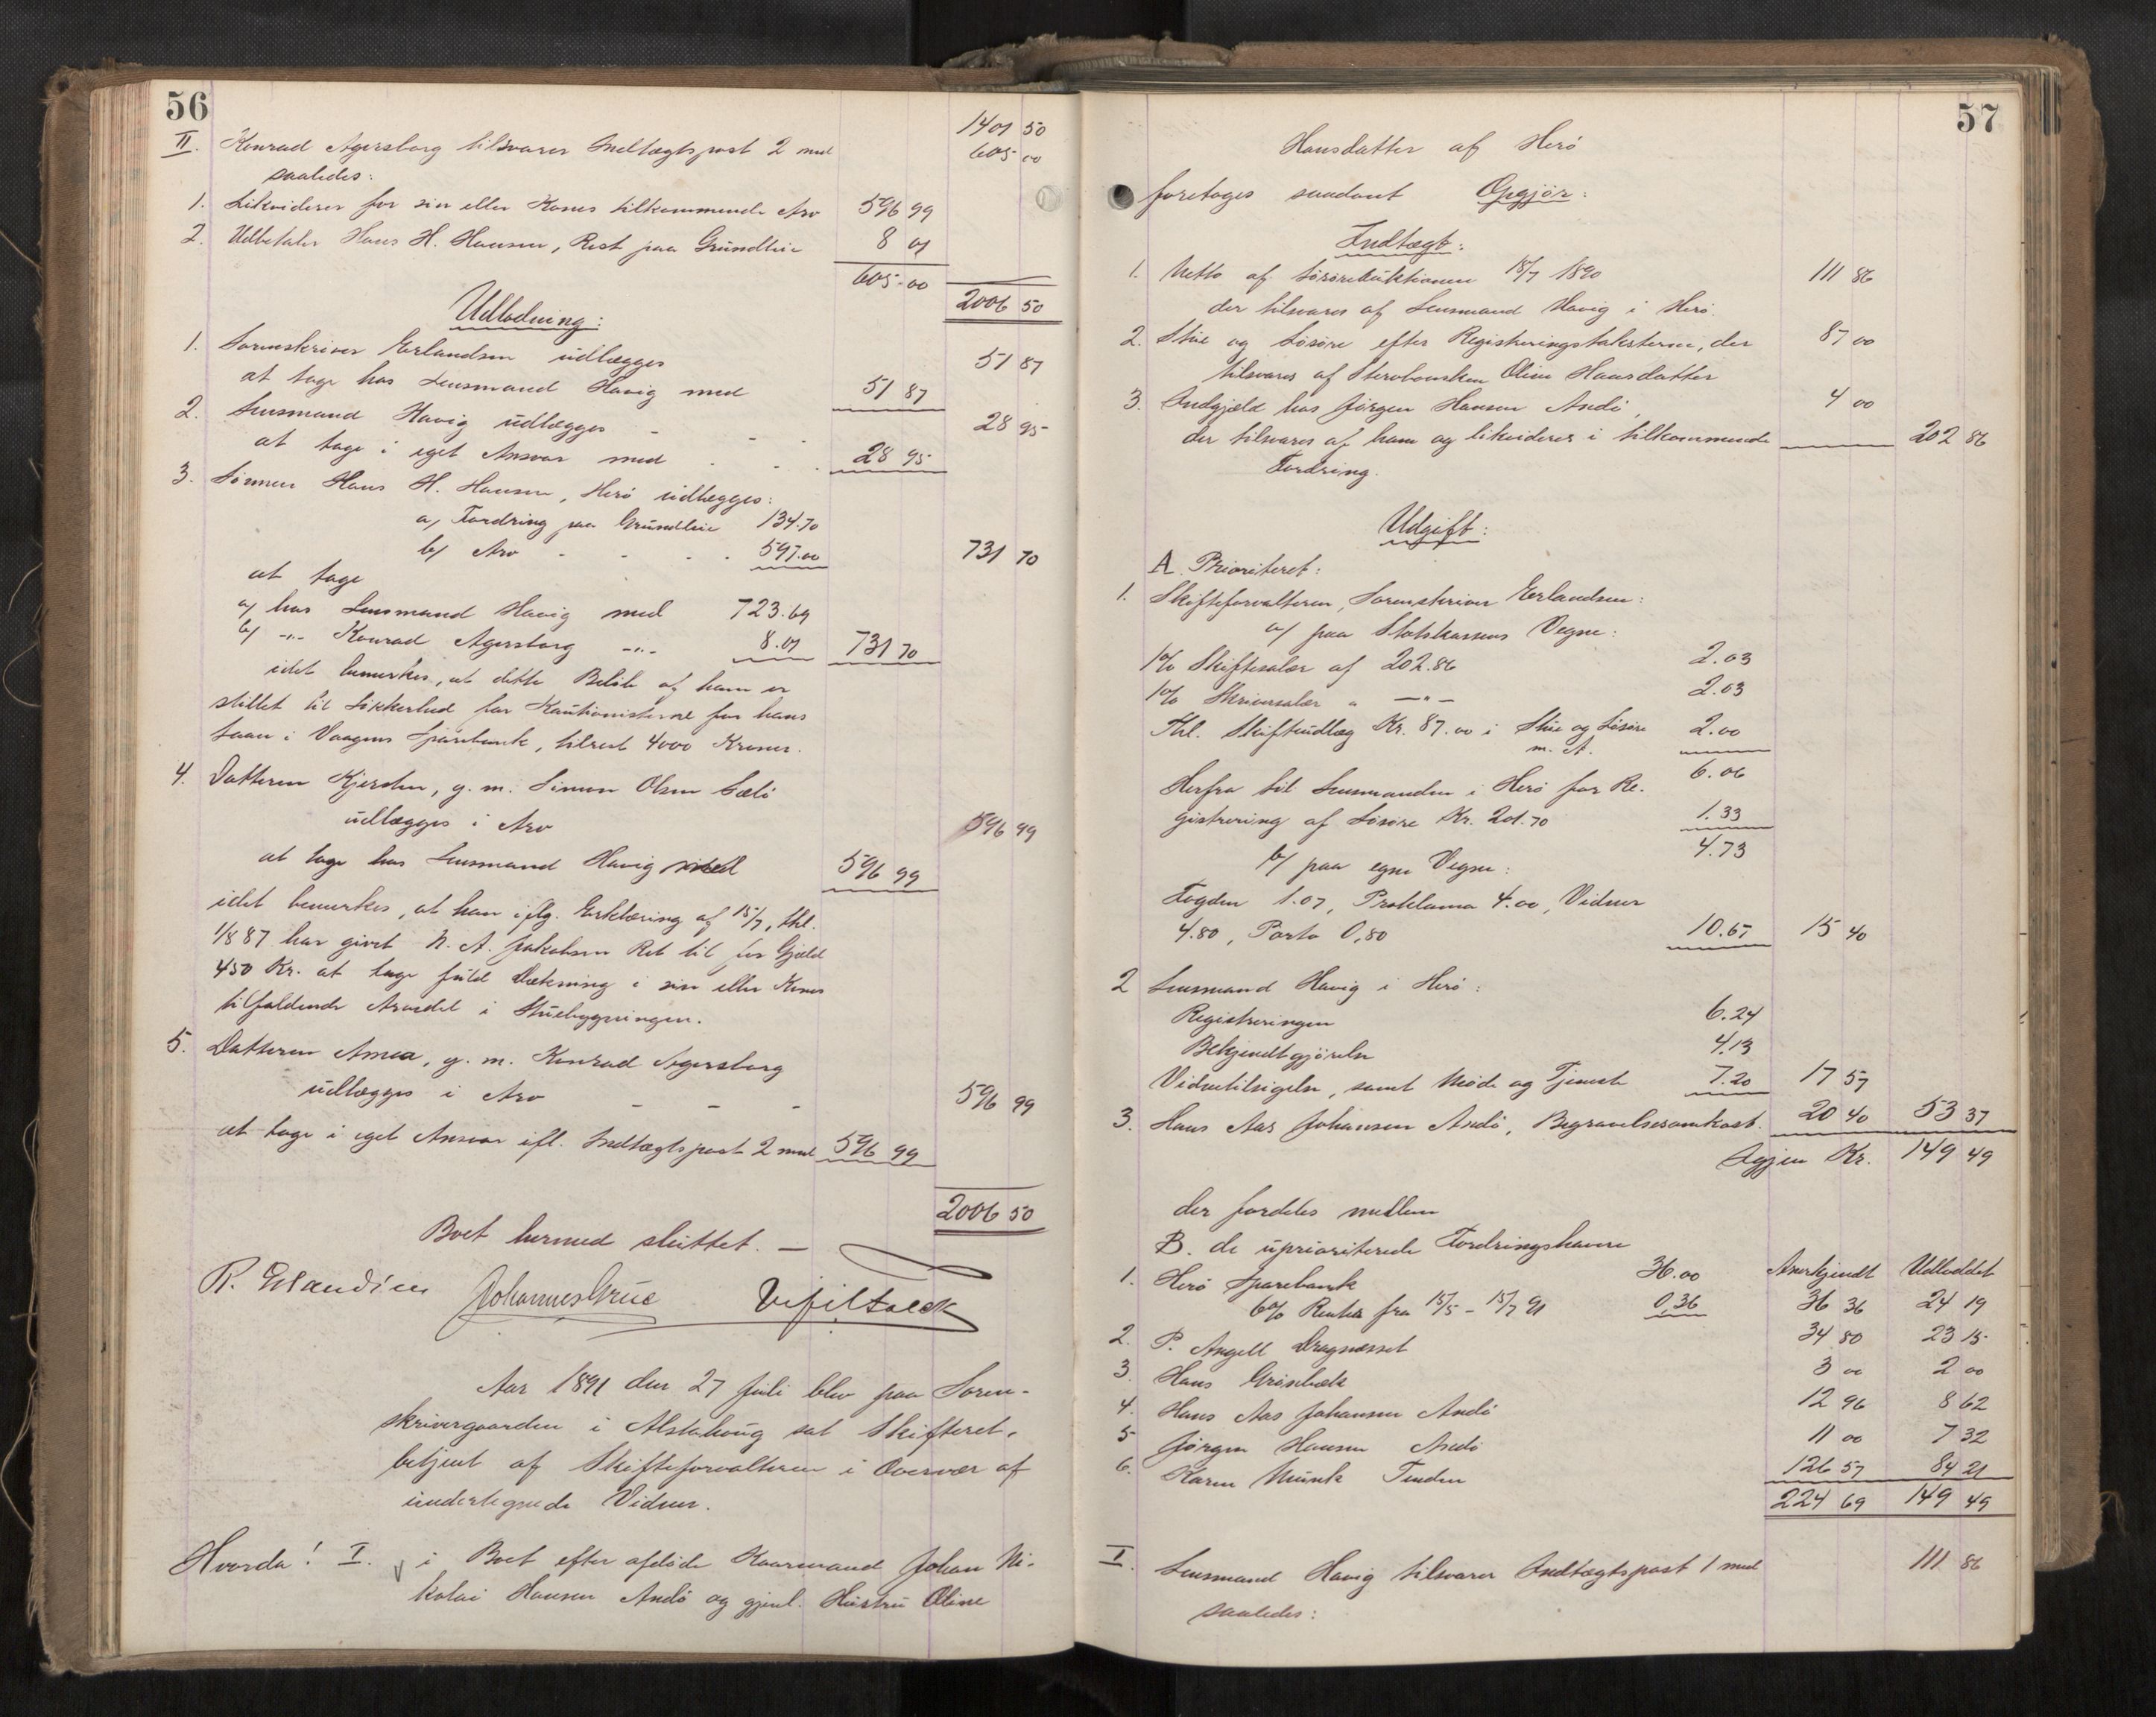 56
1401 50
II. Konrad Agersborg tilsvarer Indtægtspost 2 med 605 00
saaledes:
1. Likviderer for sin eller Kones tilkommende Arv 596 99
2. Udbetaler Hans H. Hansen, Rest paa Grundleie 8 01
605.00 2006 50
Udlodning:
1. Sorenskriver Erlandsen udlægges 51 87
at tage hos Lensmand Havig med 51 87
2. Lensmand Havig udlægges - - - 28 95
at tage i eget Ansvar med . . . 28 95
3. Sønnen Hans H. Hansen, Herø udlægges:
a/ Fordring paa Grundleie 134.70
b/ Arv - - - . 597.00 731 70
at tage
a/ hos Lensmand Havig med 723.69
b/ -"- Konrad Agersborg -"- 8.01 731 70
idet bemerkes, at dette Beløb af ham er
stillet til Sikkerhed for Kautionisterne for hans
Laan i Vaagens Sparebank, tilrest 4000 Kroner.
4. Datteren Kjersten, g. m. Simon Olsen
udlægges i Arv 596 99
at tage hos Lensmand Havig med 596 99
idet bemerkes, at han iflg. Erklæring af 15/7, thl.
1/8 87 har givet N. A. Jakobsen Ret til for Gjæld
450 Kr. at tage fuld Dækning i sin eller Kones
tilfaldende Arvedel i Stuebygningen.
5. Datteren Anna, g. m. Konrad Agersborg
udlægges i Arv - - - 596 99
at tage i eget Ansvar ifl. Indtægtspost 2 med 596 99
2006 50
Boet hermed sluttet. —
R. Erlandsen Johannes Grue
Aar 1891 den 27 Juli blev paa Soren-
skrivergaarden i Alstahoug sat Skifteret,
betjent af Skifteforvalteren i Overvær af
undertegnede Vidner.
Hvorda! I. i Boet efter afdøde Kaarmand Johan Ni-
kolai Hansen Andø og gjenl. Hustru Oline
57
Hansdatter af Herø
foretoges saadant Opgjør:
Indtægt:
1. Netto af Løsøreauktionen 18/7 1890 111 86
der tilsvares af Lensmand Havig i Herø.
2. Stue og Løsøre efter Registreringstaksterne, der 87 00
tilsvares af Stervboenken Oline Hansdatter
3. Indgjæld hos Jørgen Hansen Andø, 4 00
der tilsvares af ham og likvideres i tilkommende 202 86
Fordring.
Udgift:
A. Prioriteret:
1. Skifteforvalteren, Sorenskriver Erlandsen:
a/ paa Statskassens Vegne:
1% Skiftesalær af 202.86 2.03
1% Skriversalær " —"— 2.03
Thl. Skifteudlæg Kr. 87.00 i Stue og Løsøre 2.00
m. A.
6.06
Herfra til Lensmanden i Herø for Re-
gistrering af Løsøre Kr. 201.70 1.33
4.73
b/ paa egne Vegne:
Fogden 1.07, Proklama 4.00, Vidner
4.80, Porto 0,80 10.67 15 40
2 Lensmand Havig i Herø:
Registreringen 6.24
Bekjendtgjørelse 4.13
Vidnetilsigelse, samt Møde og Tjeneste 7.20 17 57
3. Hans Aas Johansen Andø, Begravelsesomkost. 20 40 53 37
Igjen Kr. 149 49
der fordeles mellem
B. de uprioriterede Fordringshavere
Anerkjendt Udloddet
1. Herø Sparebank 36.00
6% Renter fra 15/5 - 15/7 91 0,36 36 36 24 19
2. P. Angell Dragnesset 34 80 23 15
3. Hans Grønbæk 3 00 2 00
4. Hans Aas Johansen Andø 12 96 8 62
5 Jørgen Hansen Andø 11 00 7 32
6. Karen Munk Tenden 126 57 84 21
224 69 149 49
I. Lensmand Havig tilsvarer Indtægtspost 1 med 111 86
saaledes: